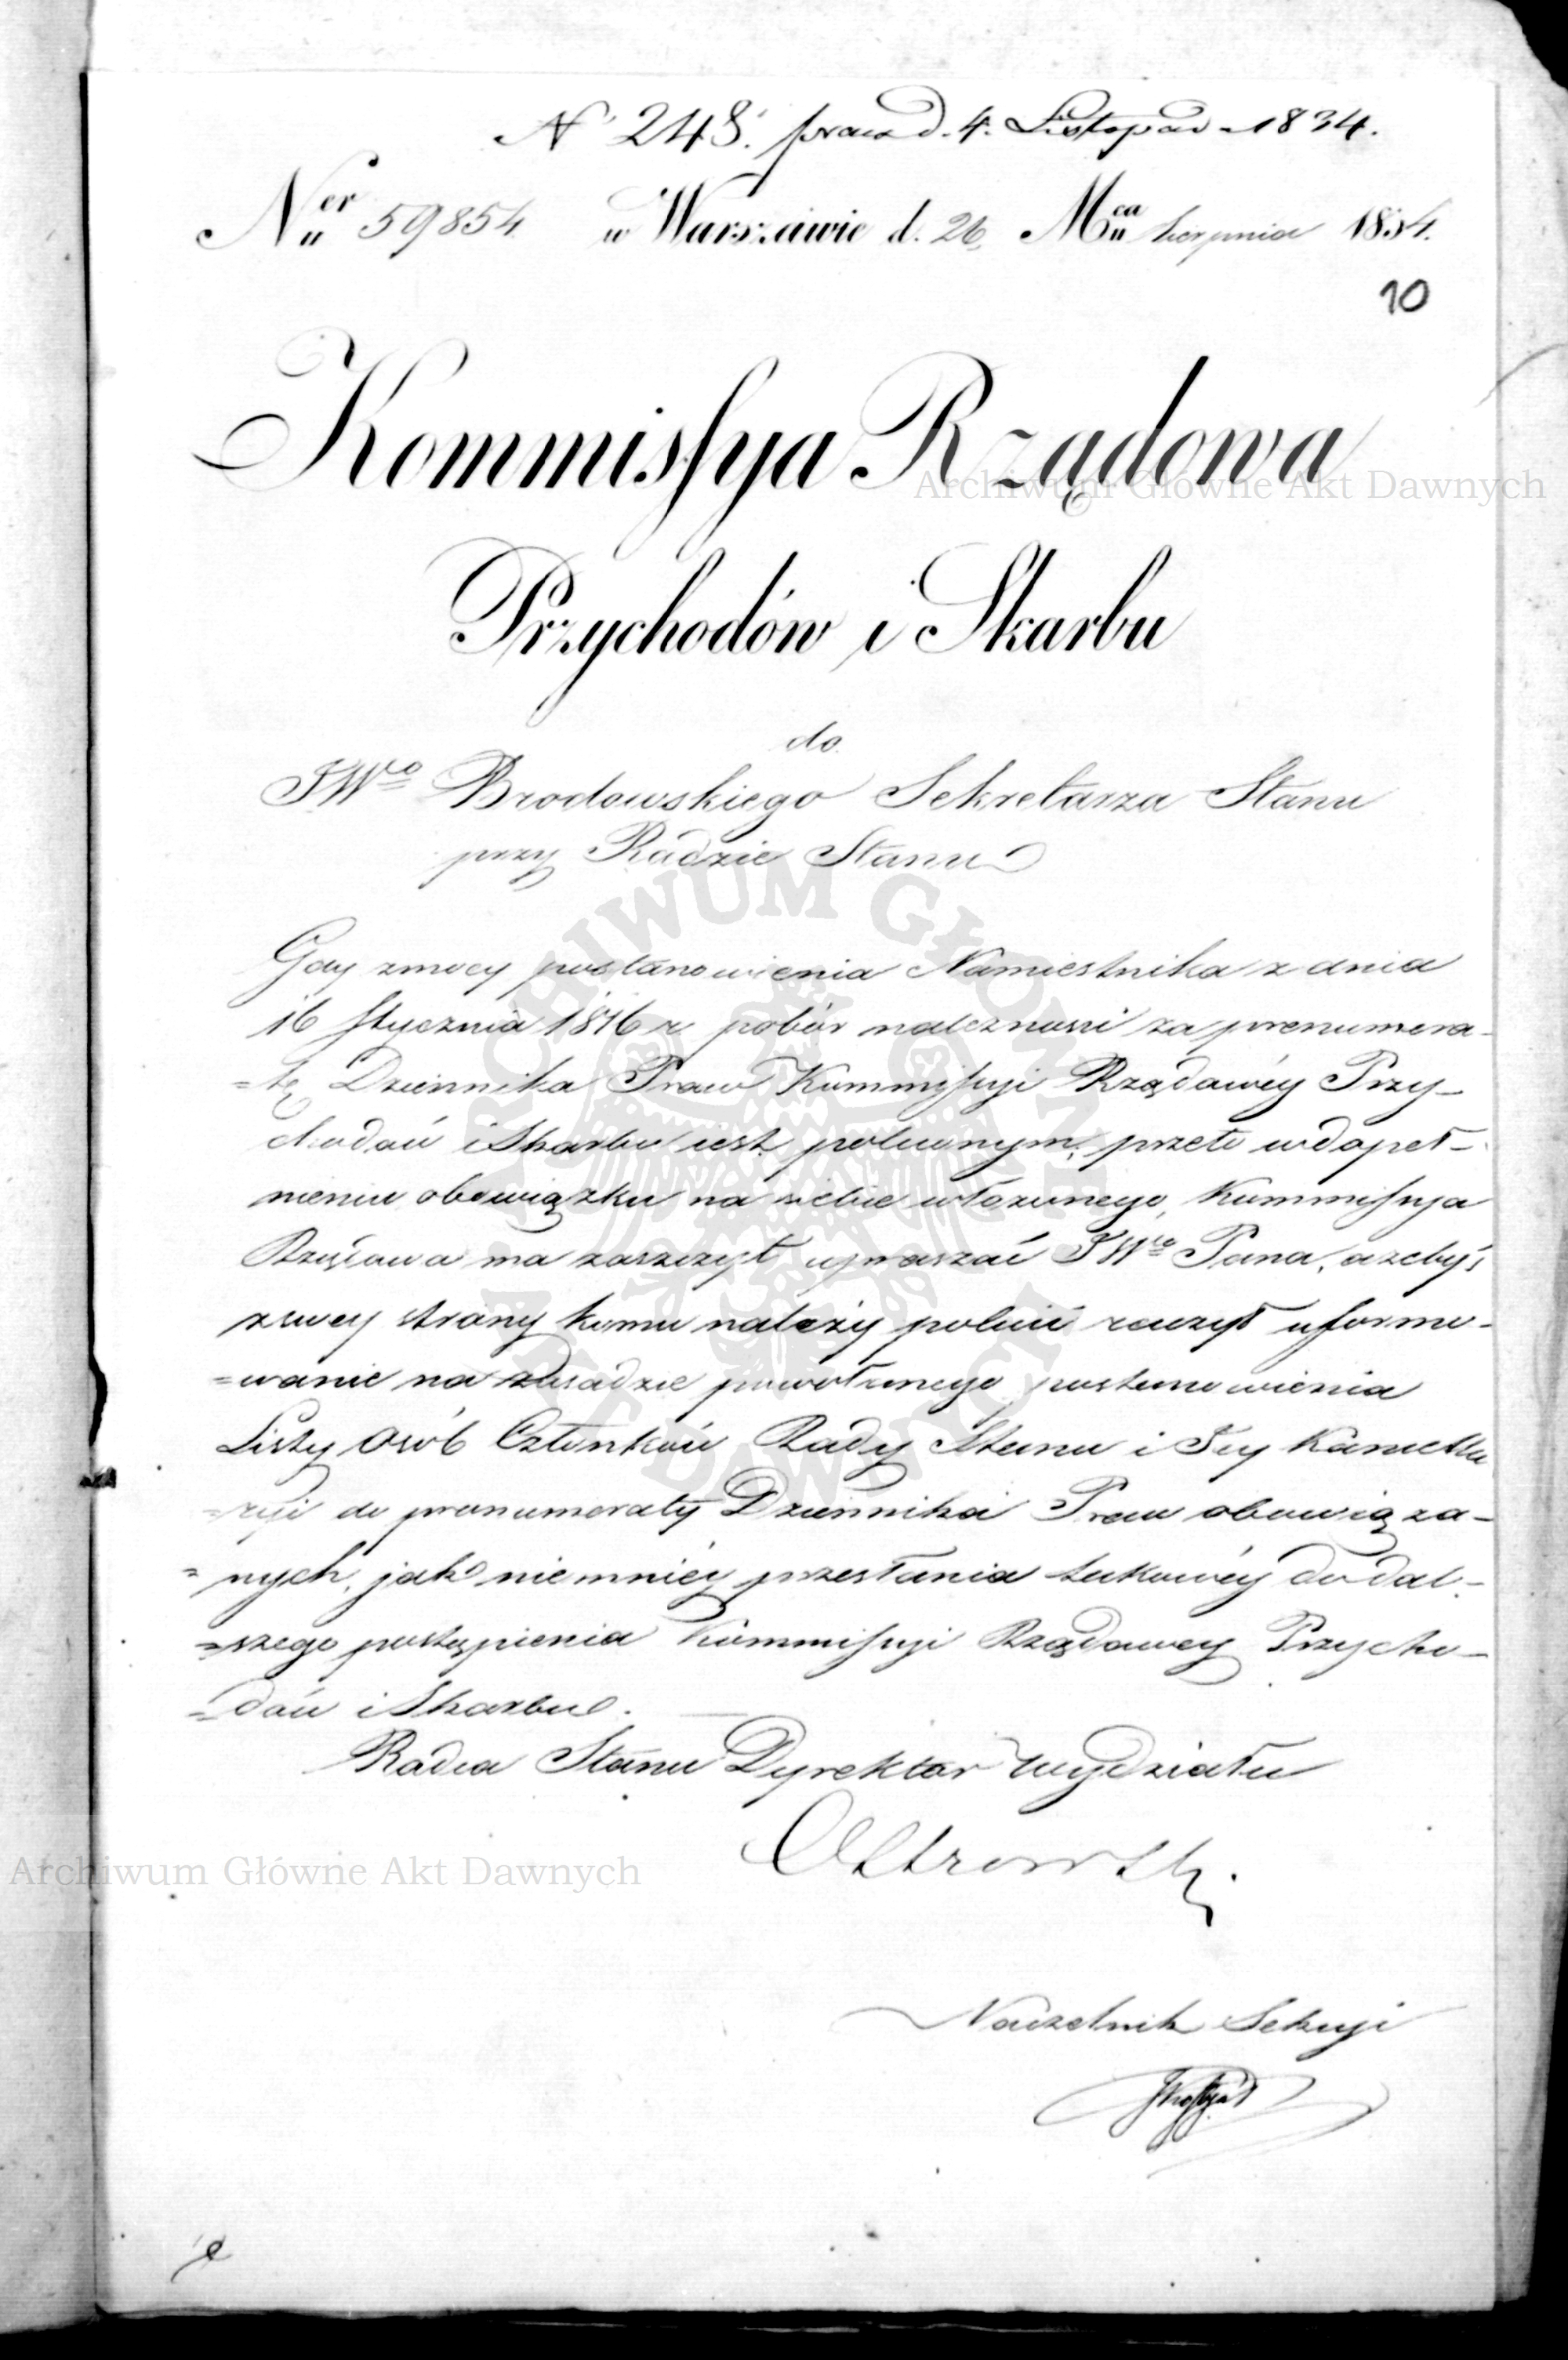 N 248. praes d. 4. Listopad 1834.
Ner 59854. w Warszawie d. 26. Mca Sierpnia 1834.
10
Kommissya Rządowa
Archiwum Główne Akt Dawnych
Przychodów i Skarbu
do
JWo Brodowskiego Sekretarza Stanu
przy Radzie Stanu
ARCHIWUM GŁÓWNE AKT DAWNYCH
Gdy zmocy postanowienia Namiestnika z dnia
16 Stycznia 1816 r. pobór należności za prenumera-
=tę Dziennika Praw Kommissyi Rządowéy Przy-
chodów i Skarbu iest poleconym, przeto w dopeł-
nieniu obowiązku na siebie włożonego, Kommissya
Rządowa ma zaszczyt upraszać JWo Pana, ażebyś
z swey strony komu należy polecić raczył uformo-
=wanie na zasadzie powołanego postanowienia
Listy Osób Członków Rady Stanu i Jey Kancella
=ryi do prenumeraty Dziennika Praw obowiąza-
=nych, jako niemniéy przesłania takowéy do dal-
=szego postąpienia Kommissyi Rządowey Przycho-
=dów i Skarbu.
Radca Stanu Dyrektor Wydziału
Ostrowski
Archiwum Główne Akt Dawnych
Naczelnik Sekcyi